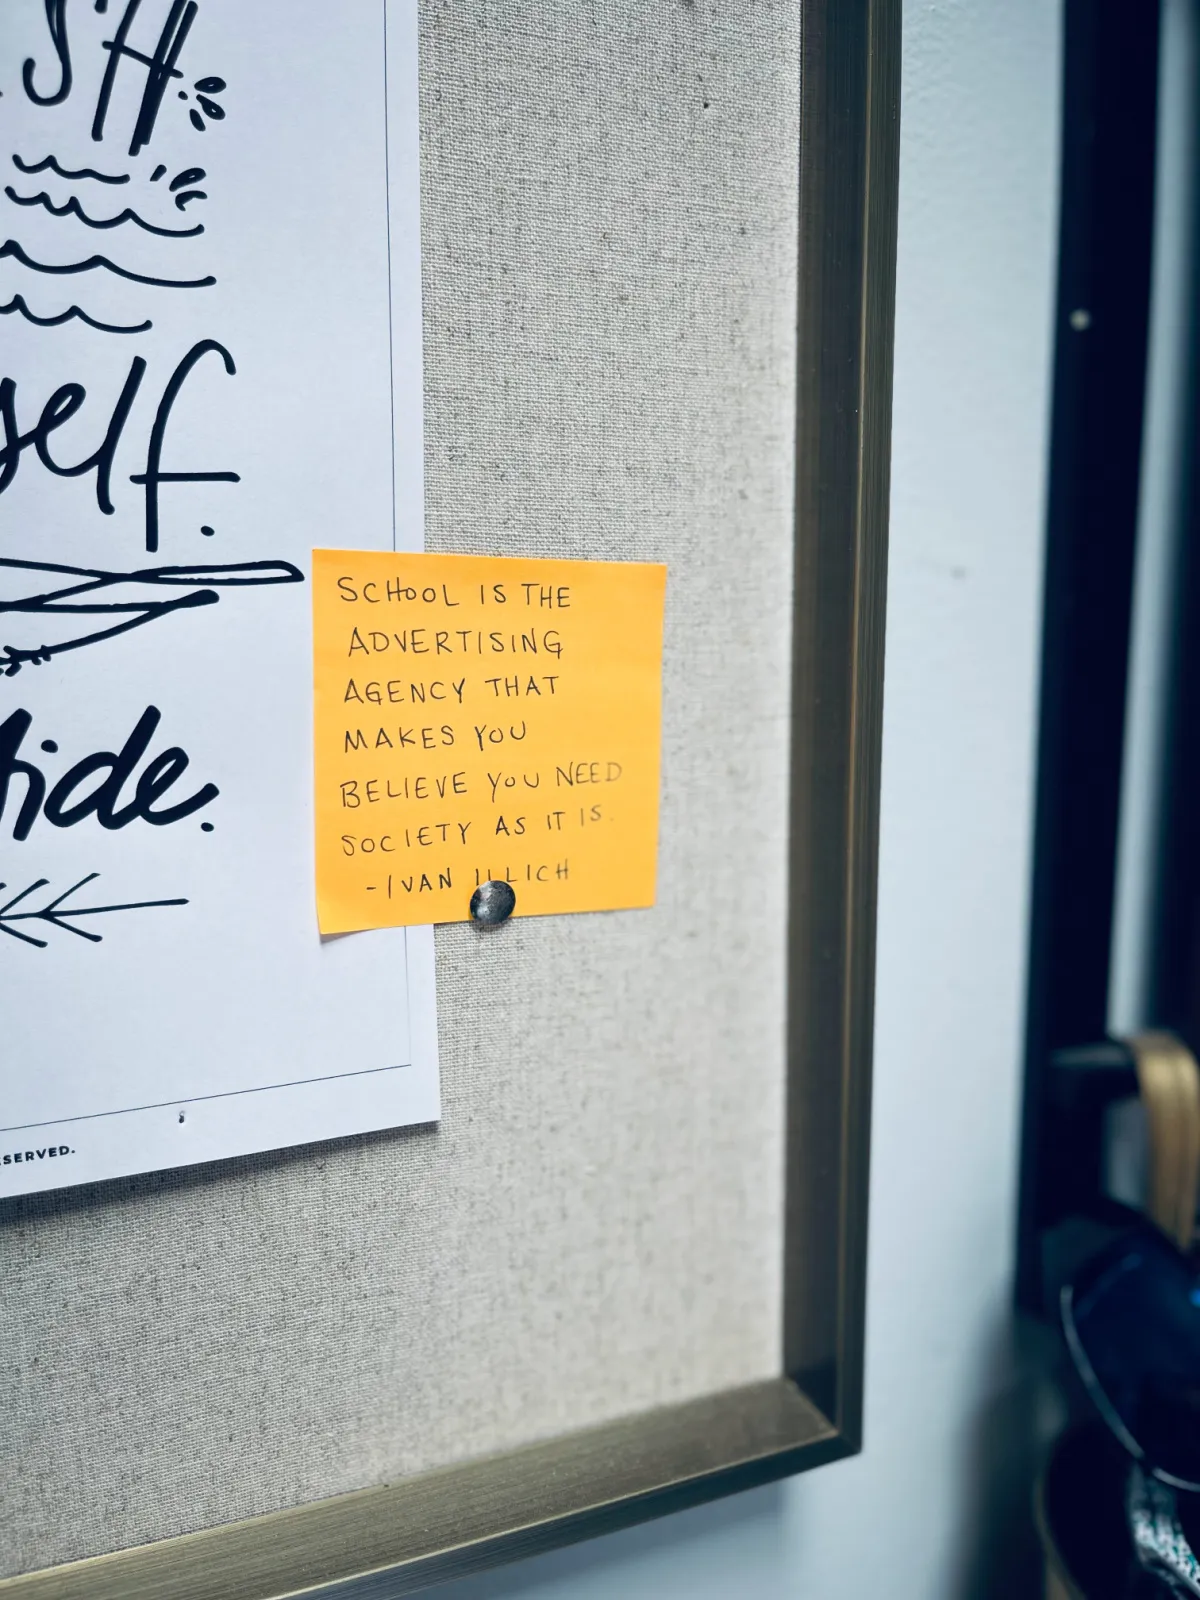 SH
self.
SCHOOL IS THE
ADVERTISING
AGENCY THAT
MAKES YOU
BELIEVE YOU NEED
SOCIETY AS IT IS.
-IVAN ILLICH
tide.
SERVED.